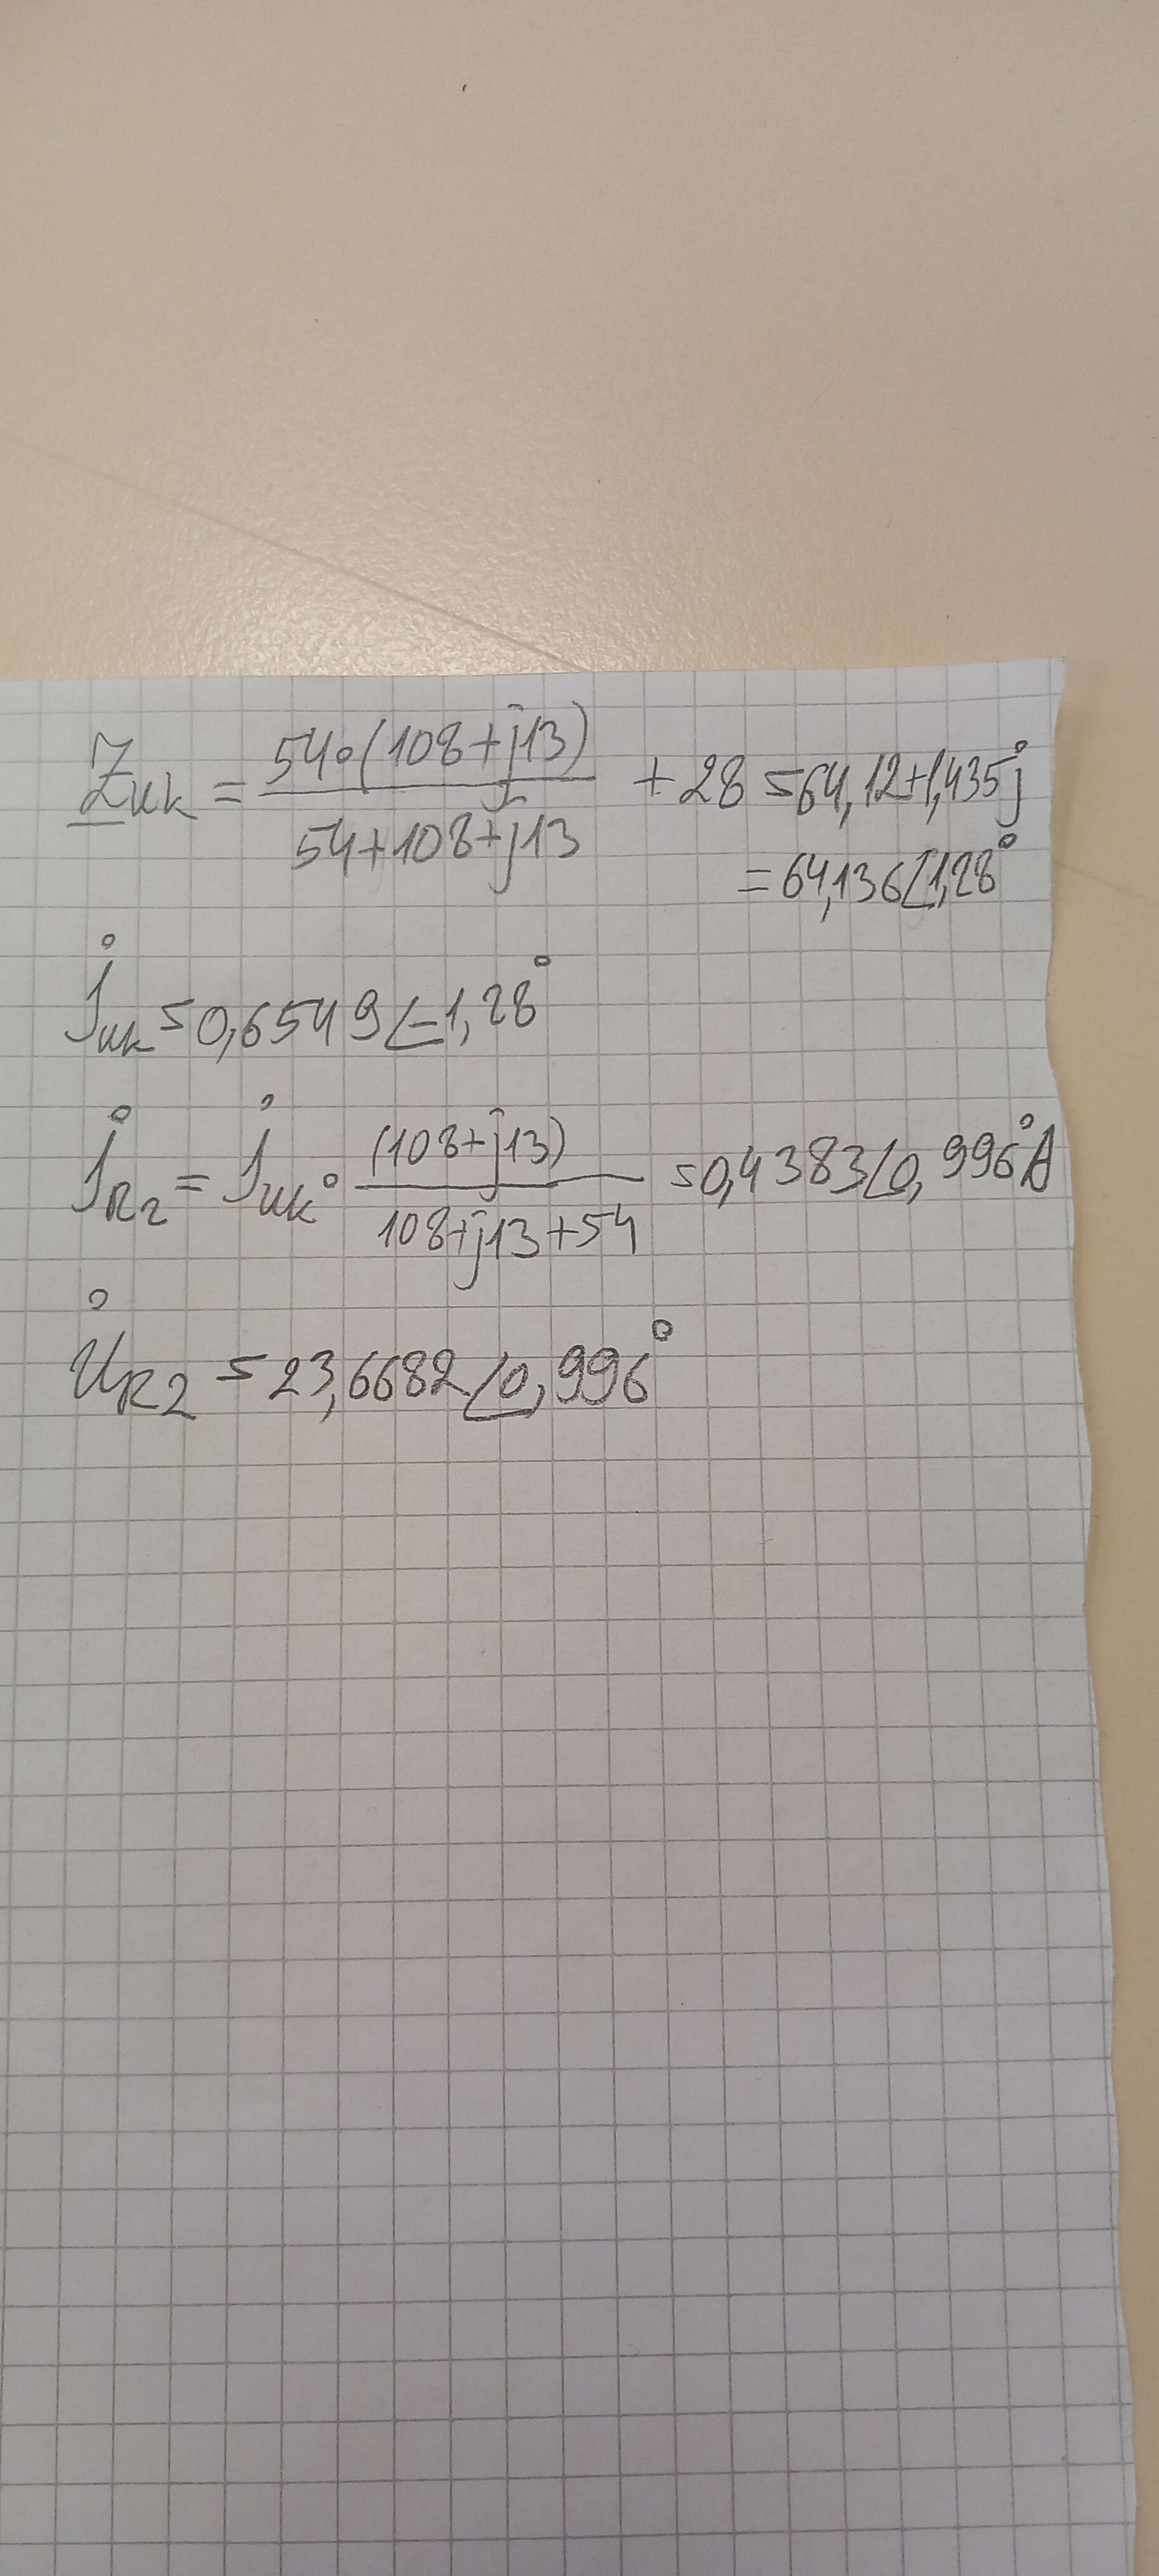 Zuk = 54∘(108+j13) / 54+108+j13 + 28 = 64,12+1,435j
= 64,136∠1,28°
İuk = 0,6549∠-1,28°
İR2 = İuk∘ (108+j13) / 108+j13+54 = 0,4383∠0,996°A
U̇R2 = 23,6682∠0,996°